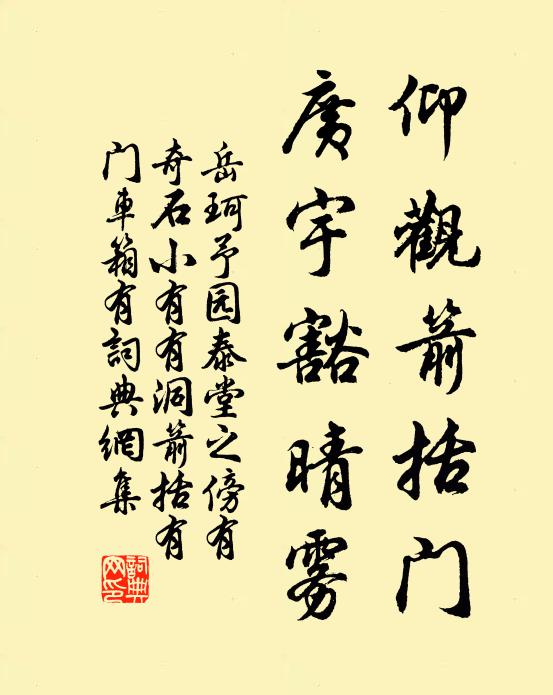 仰觀箭括门
廣宇豁晴雾
岳珂予园泰堂之傍有
奇石小有有洞箭括有
门車箱有詞典網集
詞典网印